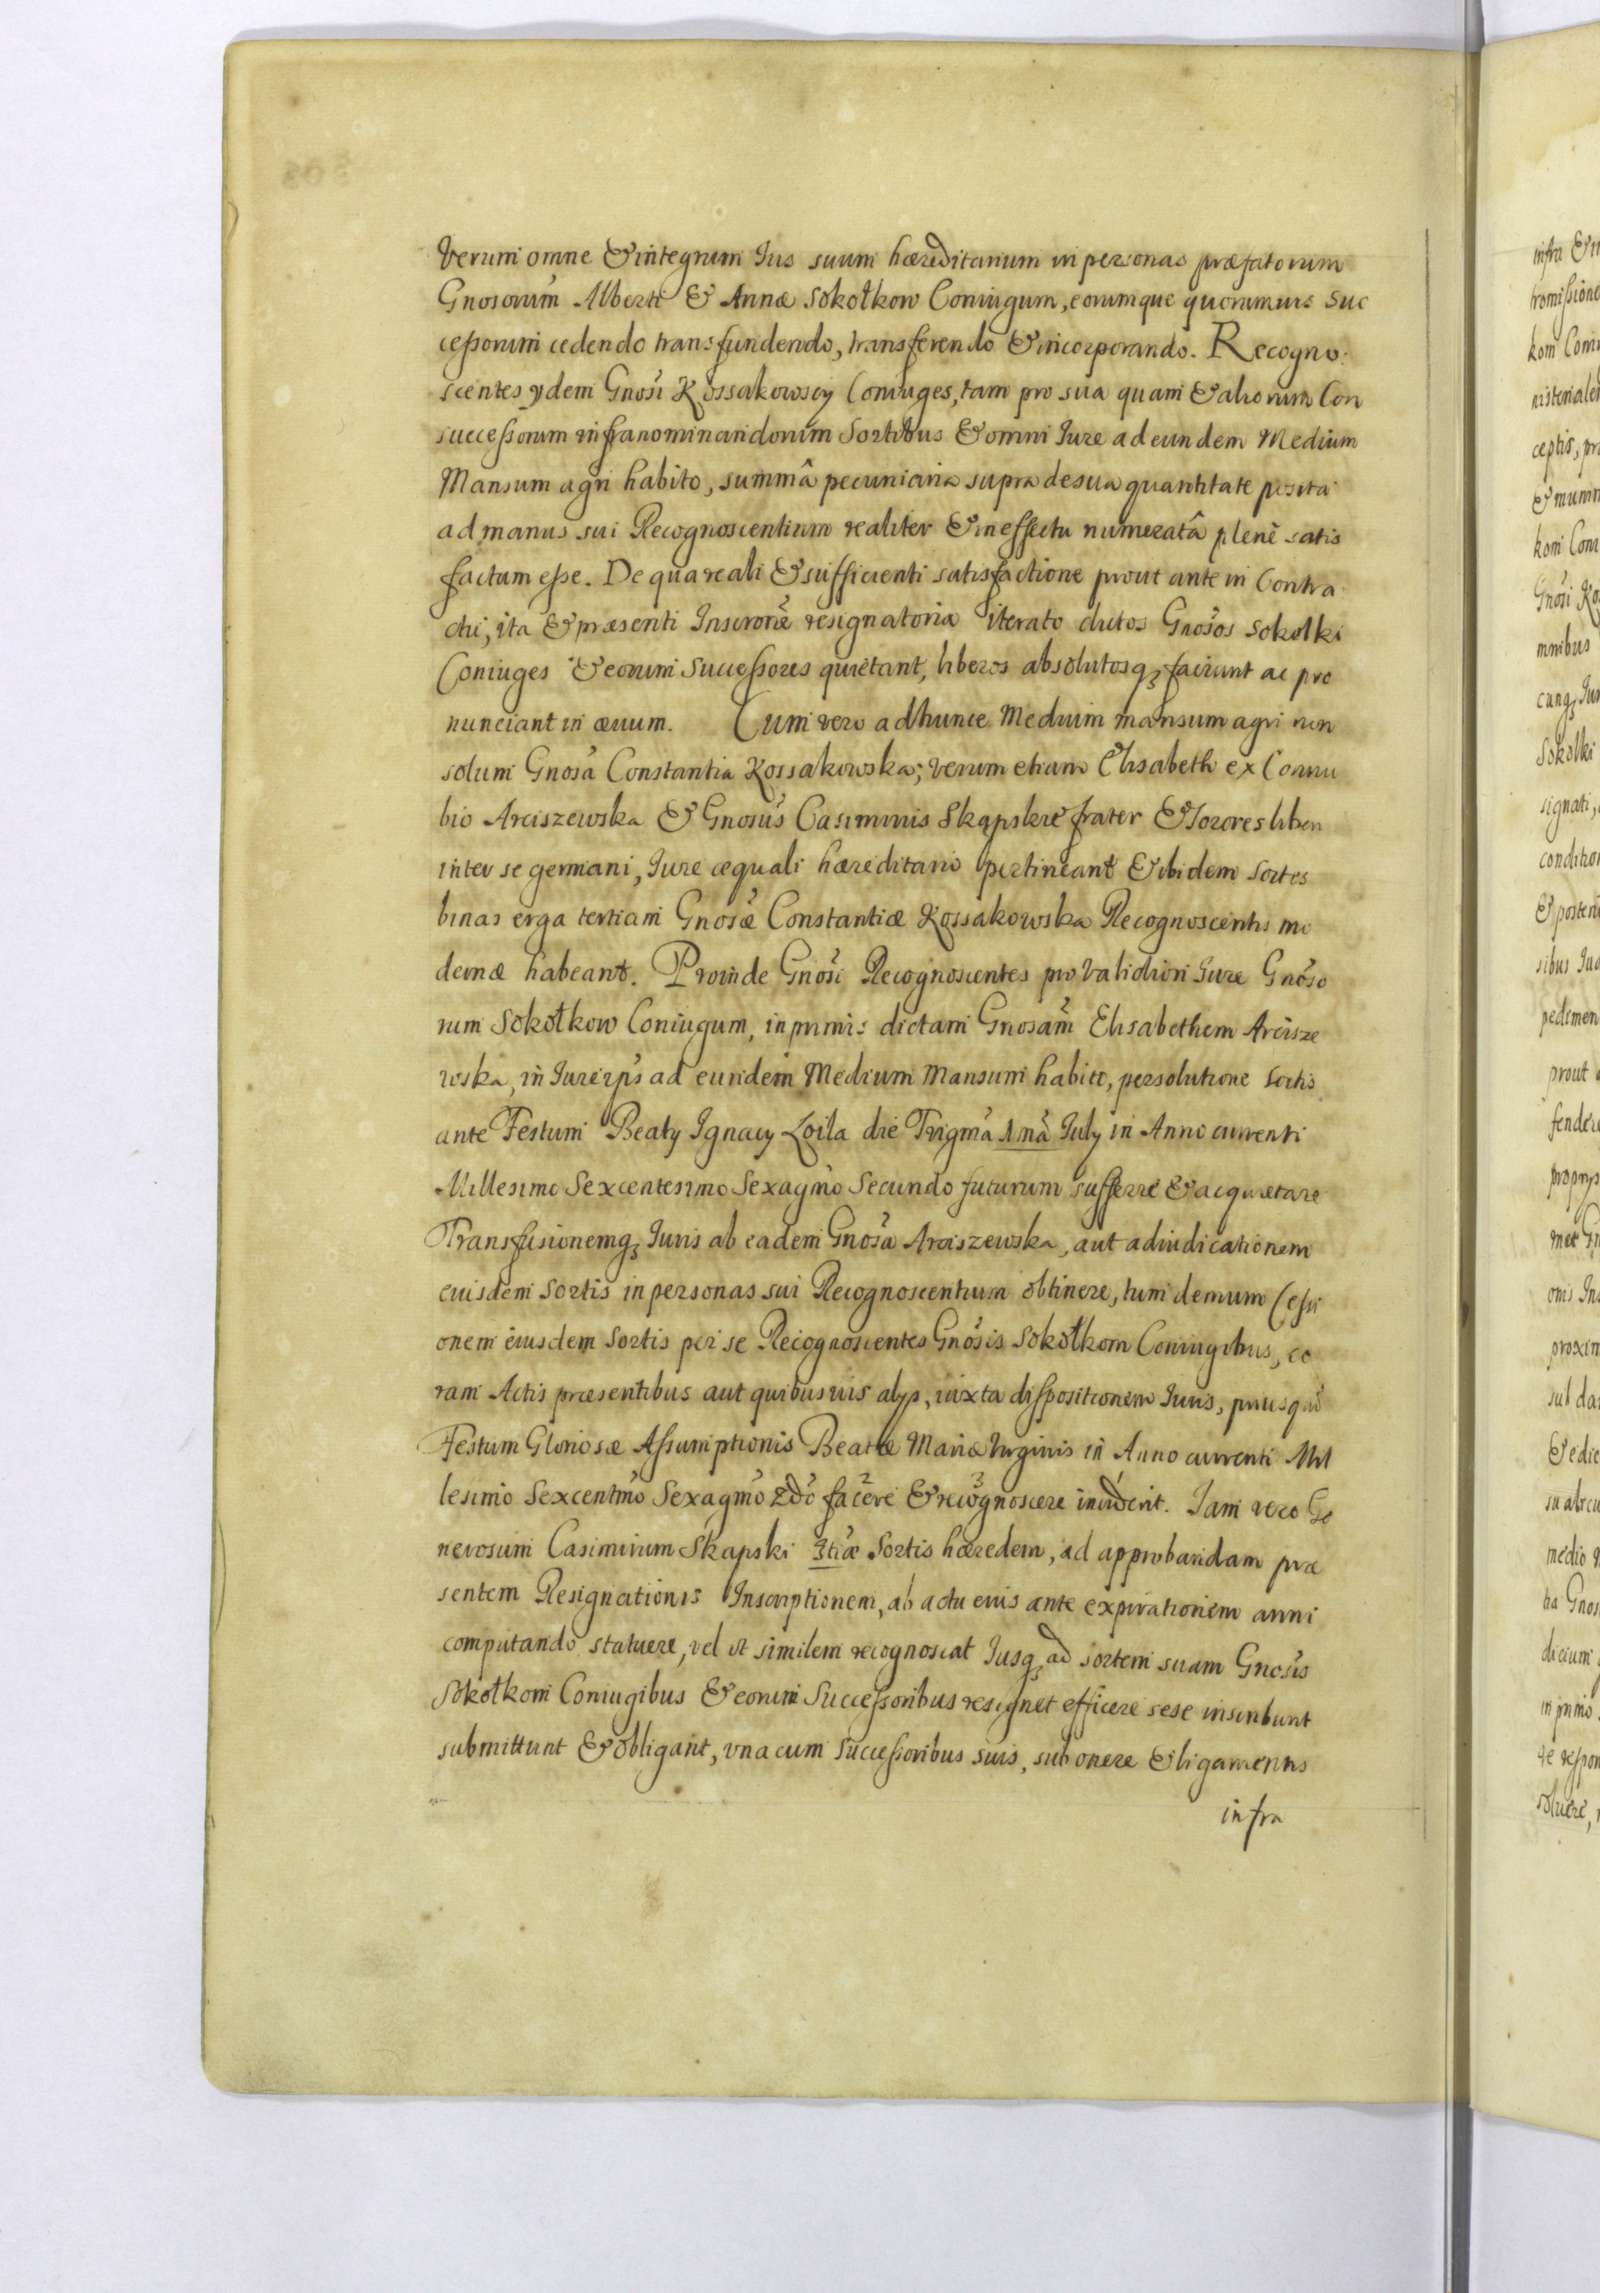 Verum omne & integrum Ius suum hæreditarium in personas præfatorum
Gnosorum Alberti & Annæ Sokołkow Coniugum, eorumque quorumuis Suc
cessorum cedendo transfundendo, transferendo & incorporando. Recogno
scentes ydem Gnosi Kossakowscy Coniuges, tam pro sua quam & aliorum Con
successorum infranominandorum Sortibus & omni Iure ad eundem Medium
Mansum agri habito, summâ pecuniaria supra de sua quantitate posita
ad manus sui Recognoscentium realiter & in effectu numeratâ plenè satis
factum esse. De qua reali & sufficienti satisfactione prout ante in Contra
ctu, ita & præsenti Inscrone resignatoria iterato dictos Gnosos Sokolki
Coniuges & eorum Successores quietant, liberos absolutosq3 faciunt ac pro
nunciant in æuum. Cum vero ad hunce Medium mansum agri non
solum Gnosa Constantia Kossakowska; verum etiam Elisabeth ex Connu
bio Arciszewska & Gnosus Casimirus Skąpskie frater & Sorores liberi
inter se germani, Iure æquali hæreditario pertineant & ibidem Sortes
binas erga tertiam Gnosæ Constantiæ Kossakowska Recognoscentis mo
dernæ habeant. Proinde Gnosi Recognoscentes pro validiori Iure Gnoso
rum Sokołkow Coniugum, inprimis dictam Gnosam Elisabethem Arcisze
wska, in Iure ips ad eundem Medium Mansum habito, persolutione Sortis
ante Festum Beaty Ignacy Loila die Trigma 1ma July in Anno currenti
Millesimo Sexcentesimo Sexagmo Secundo futurum sufferre & acquietare
Transfusionemq3 Iuris ab eadem Gnosa Arciszewska, aut adiudicationem
euisdem Sortis in personas sui Recognoscentium obtinere, tum demum Cessi
onem eiusdem Sortis per se Recognoscentes Gnosis Sokołkom Coniugibus, co
ram Actis præsentibus aut quibusuis alys, iuxta dispositionem Iuris, priusqu
Festum Gloriosæ Assumptionis Beatæ Mariæ Virginis in Anno currenti Mil
lesimo Sexcentmo Sexagmo 2do facere & recognoscere Iam vero Ge
nerosum Casimirum Skąpski 3tiæ Sortis hæredem, ad approbandam præ
sentem Resignationis Inscriptionem, ab actu eius ante expirationem anni
computando statuere, vel ut similem recognoscat Iusq3 ad sortem suam Gnosis
Sokołkom Coniugibus & eorum Successoribus resignet efficere sese inscribunt
submittunt & obligant, vna cum Successoribus suis, sub onere & ligamentis
infra